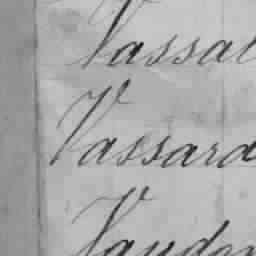 Vassal
Vassard
Vaudo